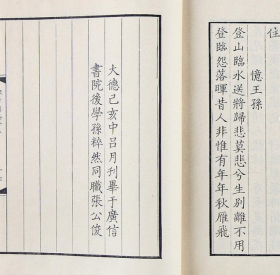 住
憶王孫
登山臨水送將歸悲莫悲兮生別離不用
登臨怨落暉昔人非惟有年年秋雁飛
大德己亥中呂月刊畢于廣信
書院後學孫粹然同職張公俊